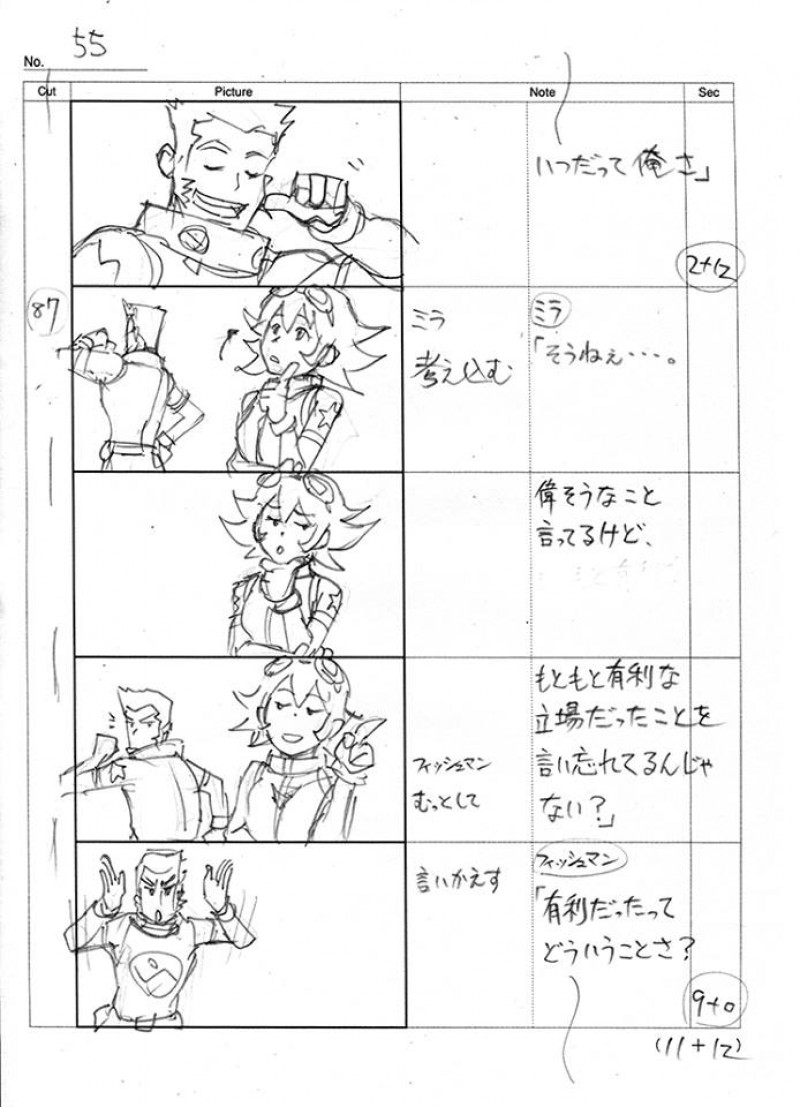 No. 55
Cut Picture Note Sec
いつだって俺さ」
2+12
87
ミラ
考え込む
ミラ
「そうねぇ・・・。
偉そうなこと
言ってるけど、
フィッシュマン
むっとして
もともと有利な
立場だったことを
言い忘れてるんじゃ
ない?」
言いかえす
フィッシュマン
「有利だったって
どういうことさ?
9+0
(11+12)